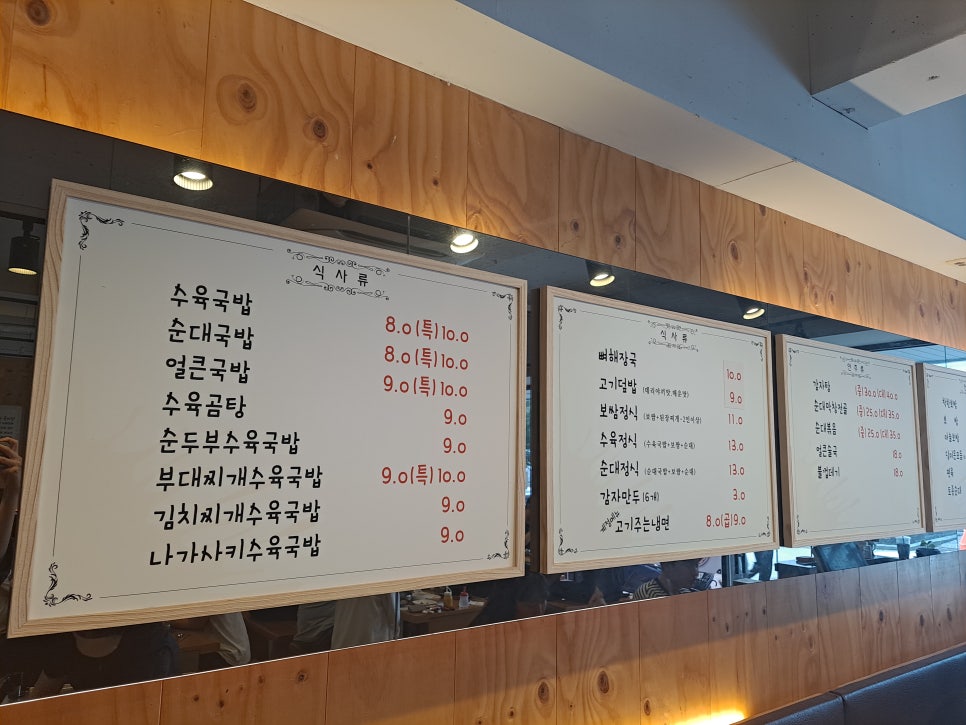 식사류
수육국밥 8.0(특)10.0
순대국밥 8.0(특)10.0
얼큰국밥 9.0(특)10.0
수육곰탕 9.0
순두부수육국밥 9.0
부대찌개수육국밥 9.0(특)10.0
김치찌개수육국밥 9.0
나가사키수육국밥 9.0
식사류
뼈해장국 10.0
고기덮밥 (데리야끼맛,매운맛) 9.0
보쌈정식 (보쌈+된장찌개-2인이상) 11.0
수육정식 (수육국밥+보쌈+순대) 13.0
순대정식 (순대국밥+보쌈+순대) 13.0
감자만두 (6개) 3.0
고기주는냉면 8.0(곱)9.0
안주류
감자탕 (중)30.0(대)40.0
순대막창전골 (중)25.0(대)35.0
순대볶음 (중)25.0(대)35.0
얼큰술국 18.0
불껍데기 18.0
보쌈
마늘보쌈